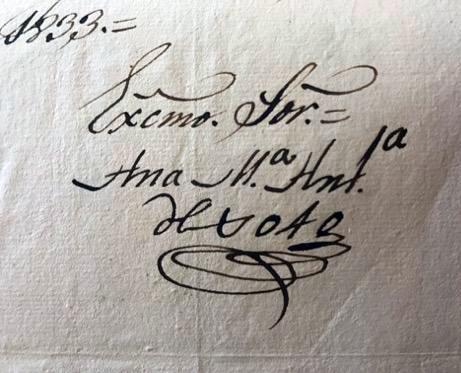 1833.=
Excmo. Sor.=
Ana M.ª Ant.ª
de Soto